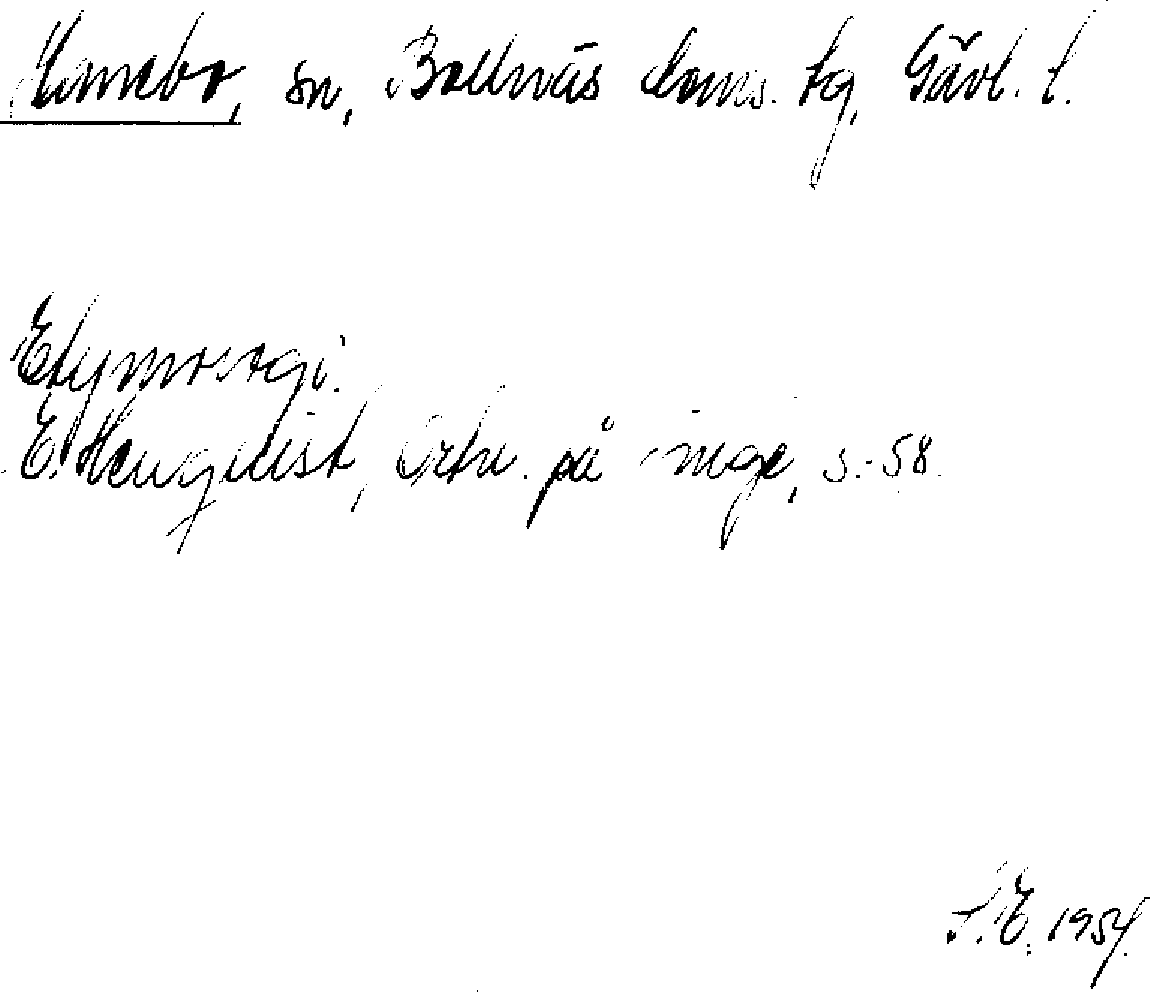 Hanebo, sn, Bollnäs doms. tg, Gävl. l.
Etymologi.
E. Hellquist, Ortn. på -inge, s. 58.
S.E. 1954.